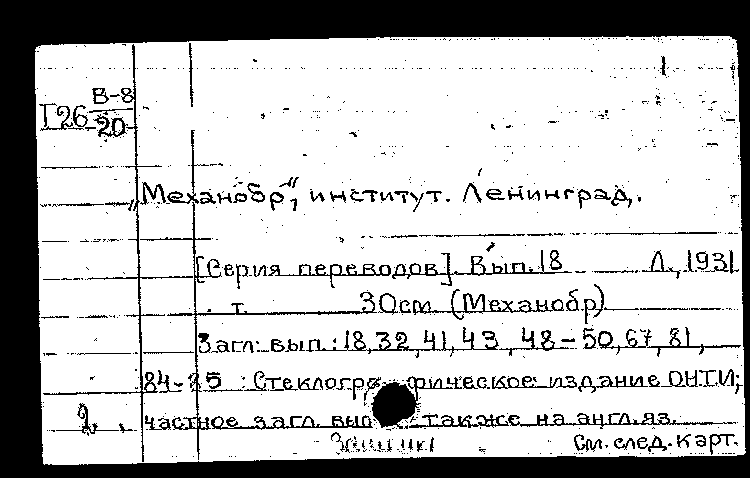 В-8
I 26 20
„Механобр", институт. Ленинград.
[Серия переводов]. Вып. 18 Л., 1931
т. 30см. (Механобр)
Загл. вып.: 18, 32, 41, 43, 48-50, 67, 81,
84-85 : Стеклографическое издание ОНТИ;
2. частное загл. вып. также на англ. яз.
См. след. карт.